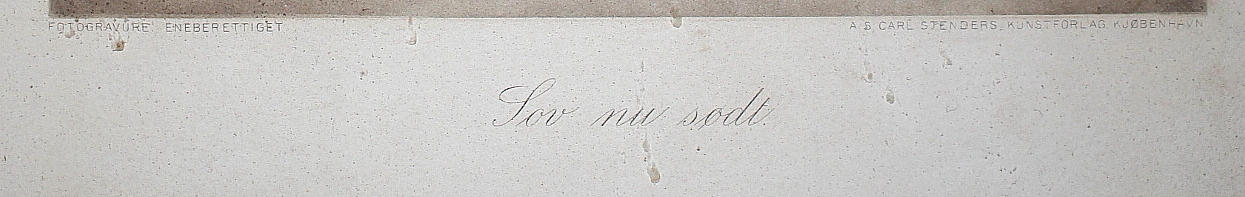 FOTOGRAVURE. ENEBERETTIGET
A/S CARL STENDERS, KUNSTFORLAG, KJØBENHAVN
Sov nu sødt.